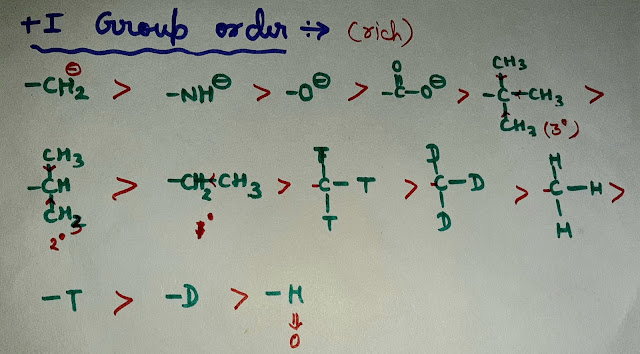 +I Group order ⇒ (rich)
-CH₂⊖ > -NH⊖ > -O⊖ > -C(=O)-O⊖ > -C(CH₃)(CH₃)-CH₃ (3°) >
CH₃-CH-CH₃ 2° > -CH₂-CH₃ 1° > -C(T)(T)-T > -C(D)(D)-D > -C(H)(H)-H >
-T > -D > -H
⇓
0